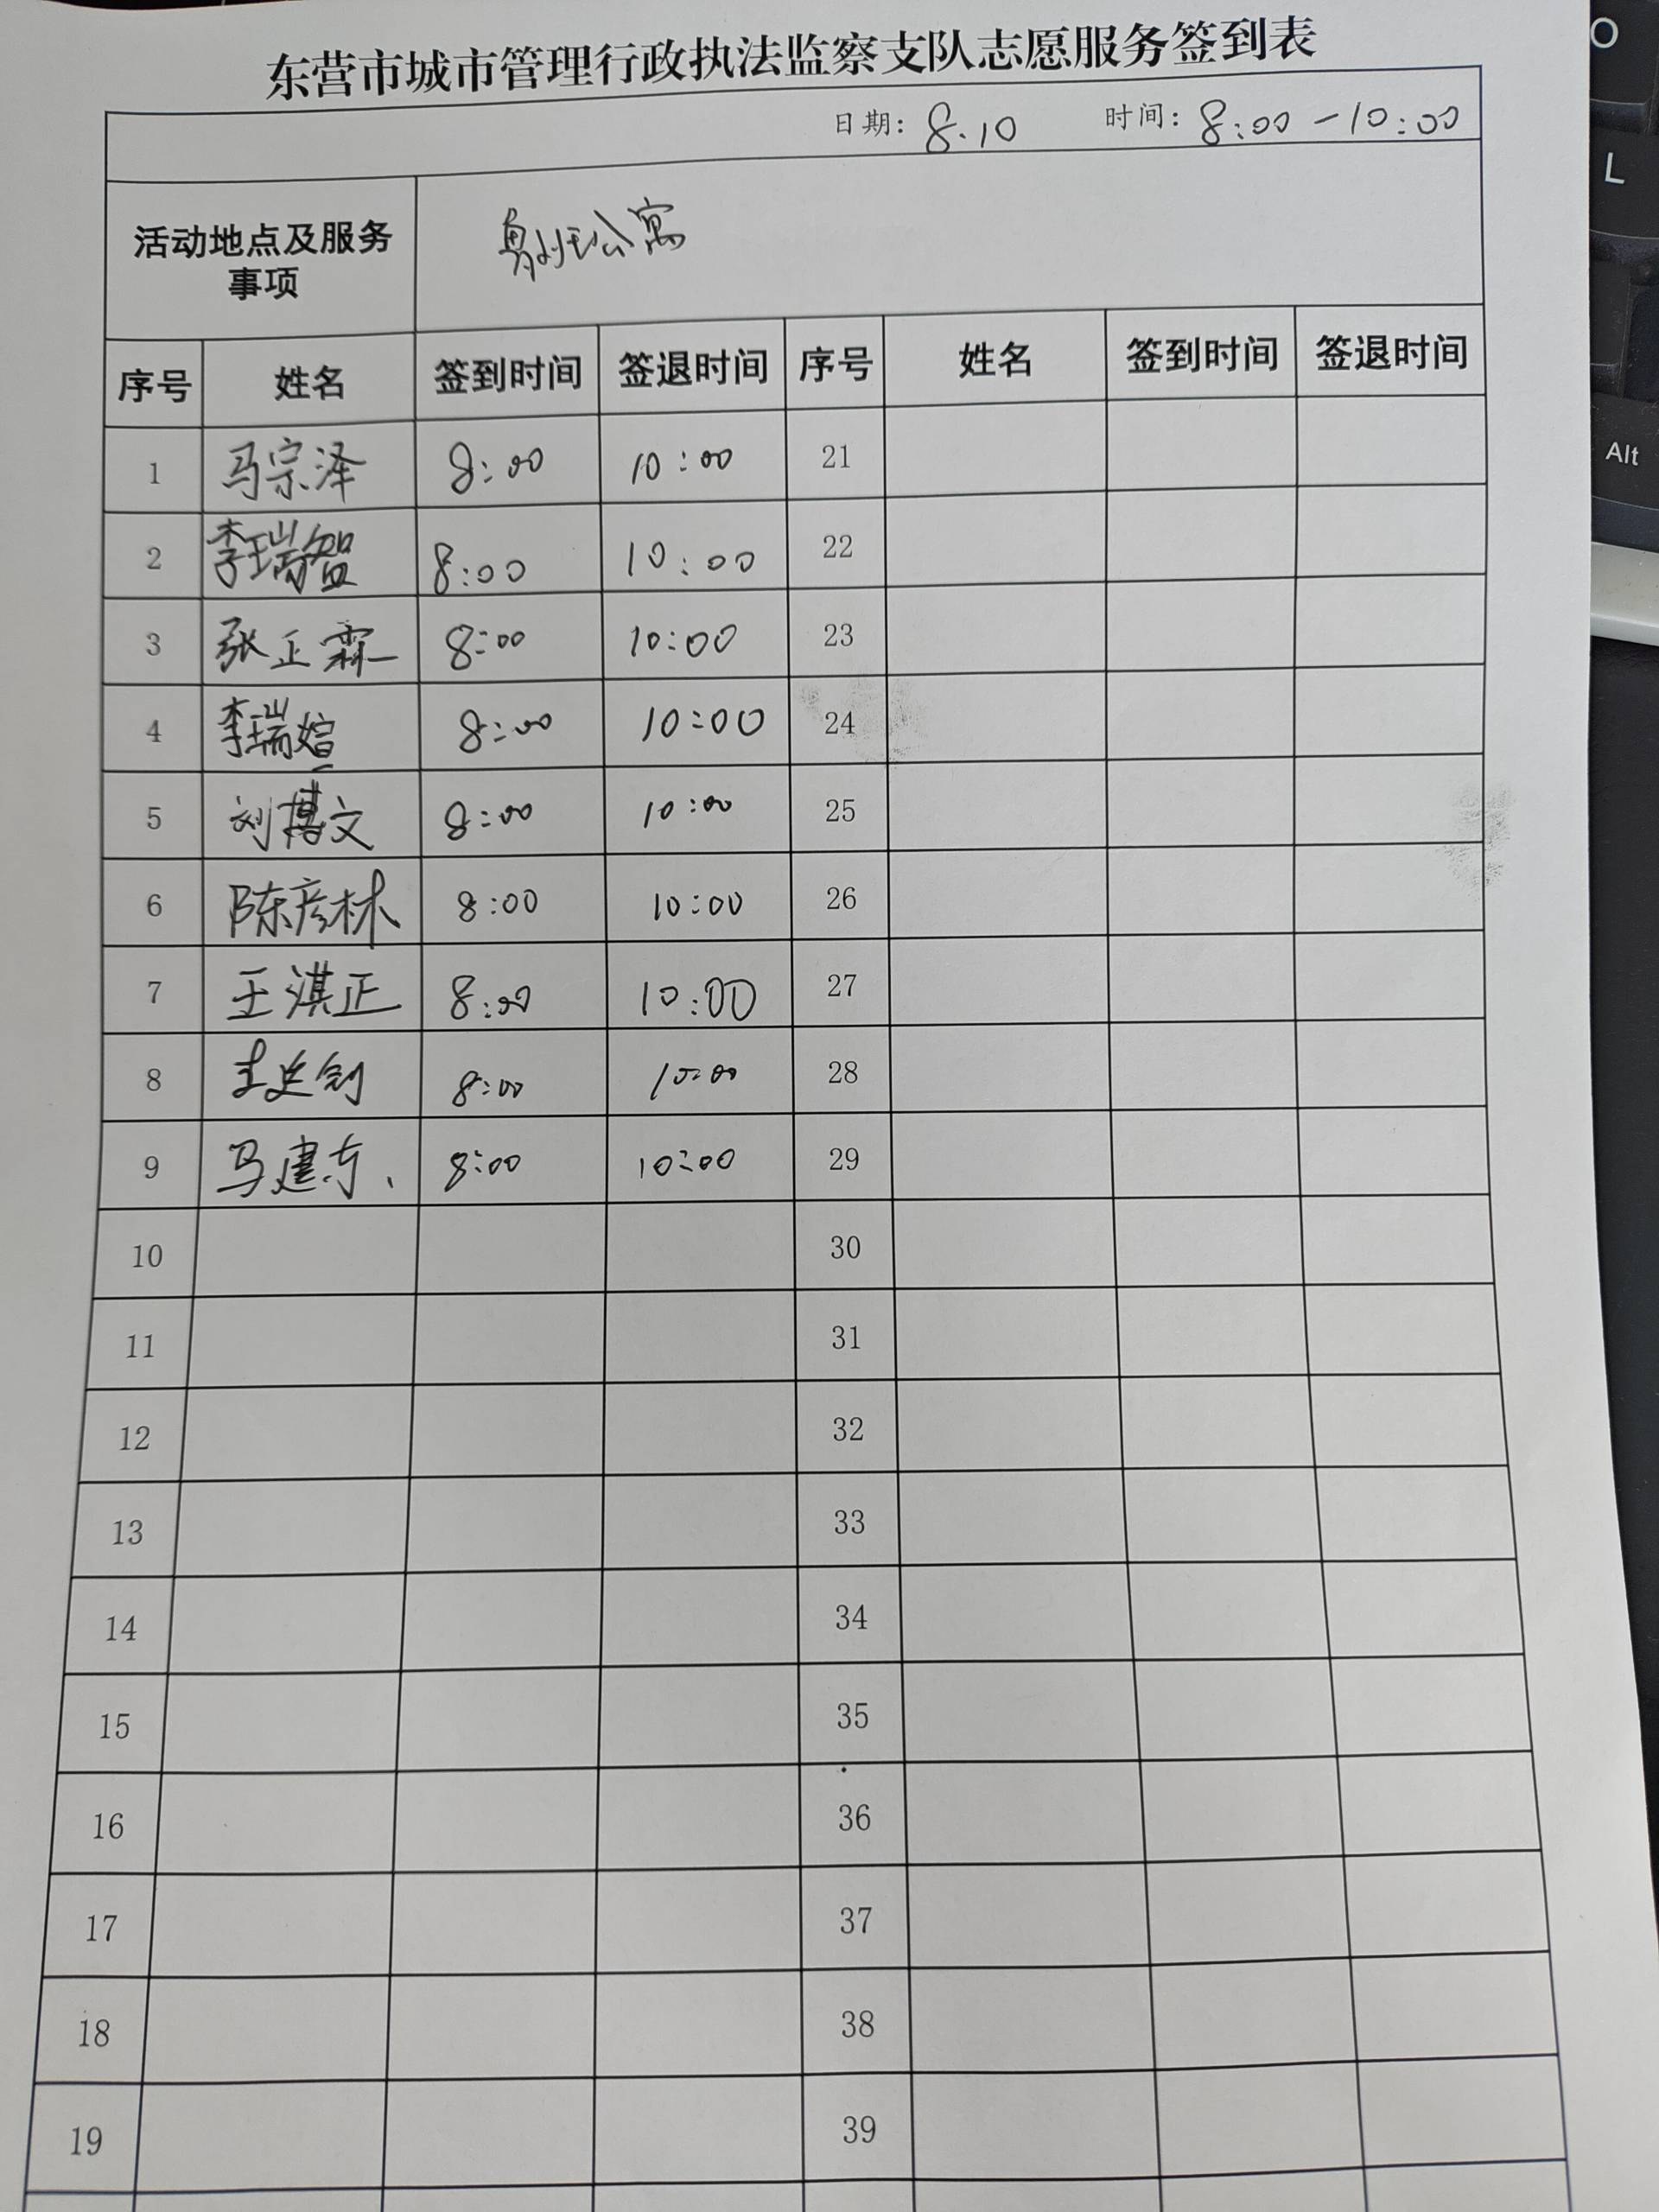 东营市城市管理行政执法监察支队志愿服务签到表
日期: 8.10 时间: 8:00-10:00
活动地点及服务
事项
公寓
序号 姓名 签到时间 签退时间 序号 姓名 签到时间 签退时间
1 马宗泽 8:00 10:00 21
2 李瑞智 8:00 10:00 22
3 张正霖 8:00 10:00 23
4 李瑞 8:00 10:00 24
5 刘博文 8:00 10:00 25
6 陈彦林 8:00 10:00 26
7 王淇正 8:00 10:00 27
8 8:00 10:00 28
9 马建东、 8:00 10:00 29
10 30
11 31
12 32
13 33
14 34
15 35
16 36
17 37
18 38
19 39
O
L
Alt